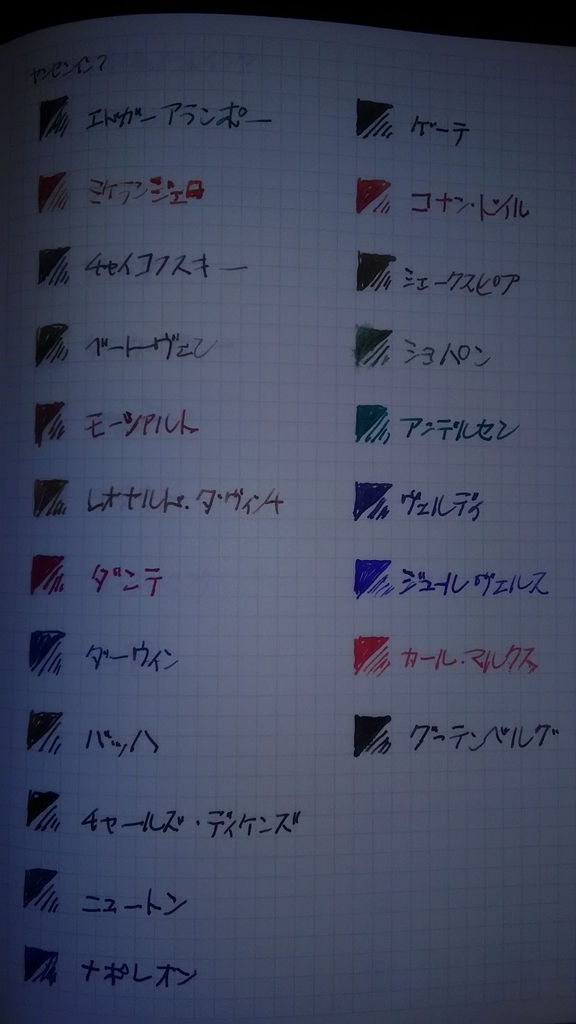 ヤンセンインク
エドガーアランポー
ミケランジェロ
チャイコフスキー
ベートーヴェン
モーツアルト
レオナルド・ダ・ヴィンチ
ダンテ
ダーウィン
バッハ
チャールズ・ディケンズ
ニュートン
ナポレオン
ゲーテ
コナン・ドイル
シェークスピア
ショパン
アンデルセン
ヴェルディ
ジュールヴェルヌ
カール・マルクス
グーテンベルグ